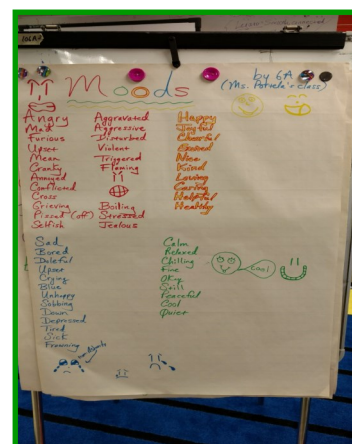 Moods
by 6A
(Ms. Astele's class)
Angry
Mad
Furious
Upset
Mean
Cranky
Annoyed
Conflicted
Cross
Grieving
Pissed (off)
Selfish
Aggravated
Aggressive
Disturbed
Violent
Triggered
Flaming
Boiling
Stressed
Jealous
Happy
Joyful
Cheerful
Excited
Nice
Kind
Loving
Caring
Helpful
Healthy
Sad
Bored
Doleful
Upset
Crying
Blue
Unhappy
Sobbing
Down
Depressed
Tired
Sick
Frowning
Calm
Relaxed
Chilling
Fine
Okay
Chill
Peaceful
Cool
Quiet
Cool